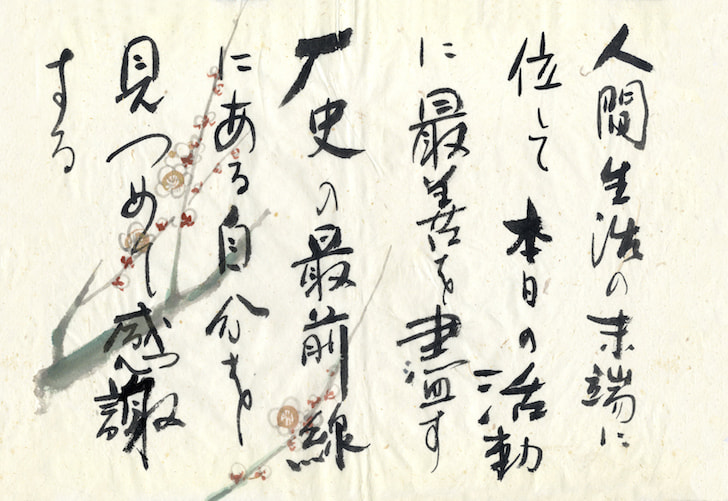 人間生活の末端に
位して本日の活動
に最善を盡す
厂史の最前線
にある自分を
見つめて感謝
する